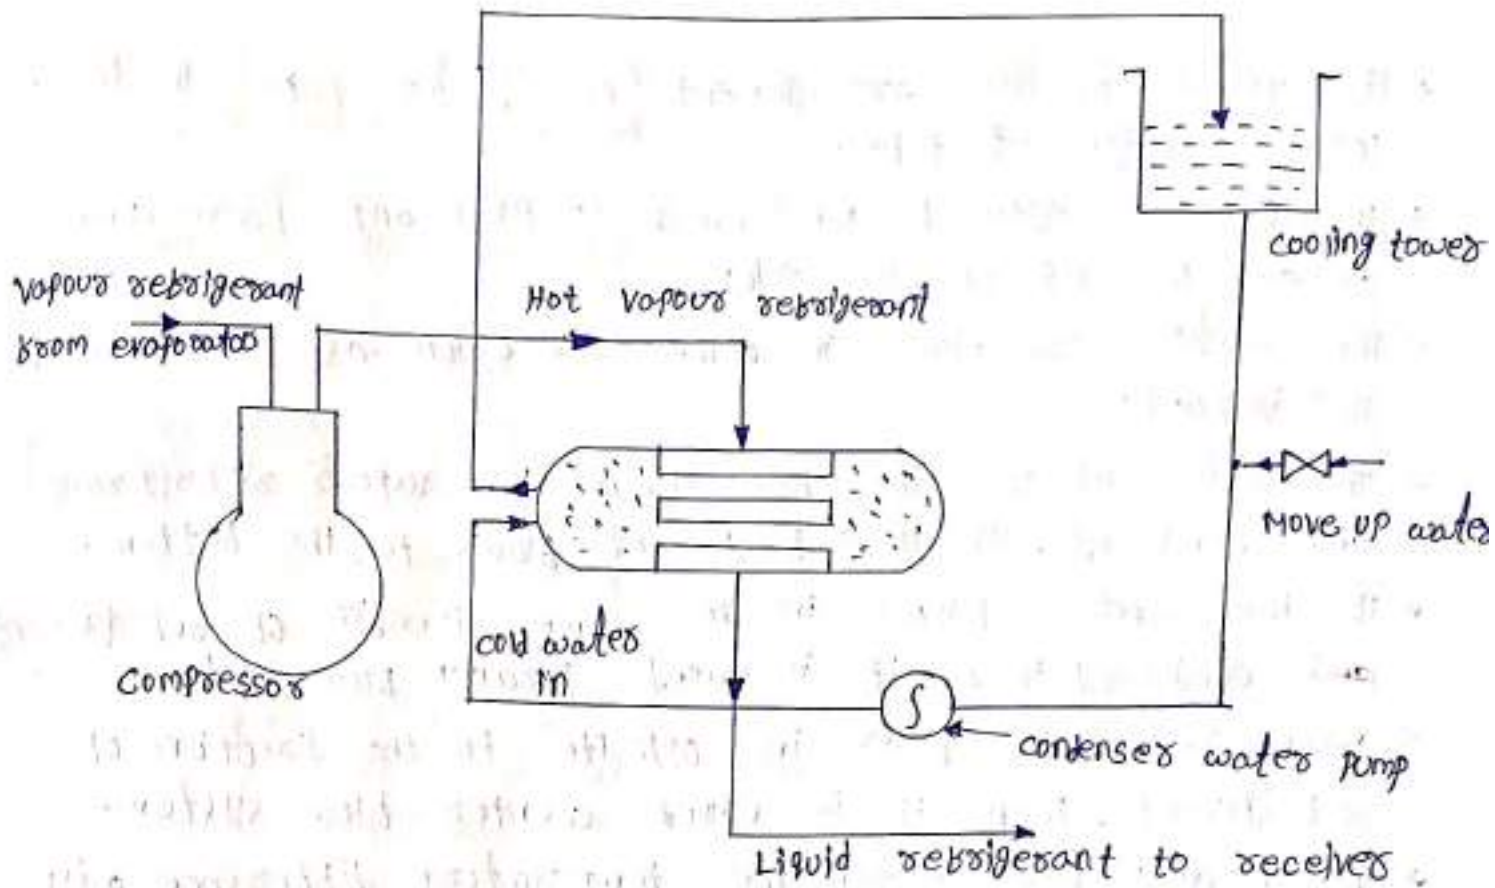 cooling tower
Vapour refrigerant
from evaporator
Hot Vapour refrigerant
Move up water
cold water
in
compressor
condenser water pump
Liquid refrigerant to receiver